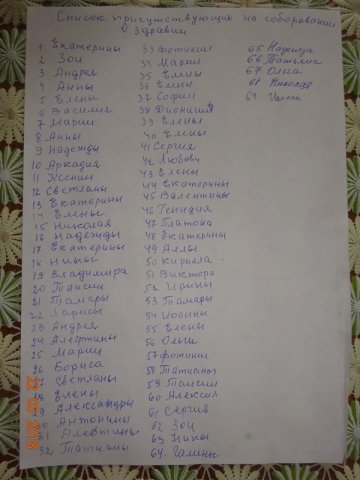 Список присутствующих на соборовании
Здравии
1. Екатерины
2. Зои
3. Андрея
4 Анны
5 Елены
6 Василия
7 Марии
8 Анны
9 Надежды
10 Аркадия
11 Ксении
12 Светланы
13 Екатерины
14 Елены
15 Николая
16 Надежды
17 Екатерины
18 Нины
19 Владимира
20 Таисии
21 Тамары
22 Ларисы
23 Андрея
24 Алефтины
25 Марии
26 Бориса
27 Светланы
28 Елены
29 Александры
30 Антонины
31 Алефтины
32 Татианы
33 Фотинии
34 Марии
35 Елены
36 Елены
37 Софии
38 Дионисия
39 Елены
40 Елены
41 Сергия
42 Любови
43 Елены
44 Екатерины
45 Валентины
46 Генндия
47 Платона
48 Екатерины
49 Аллы
50 Кирилла
51 Виктора
52 Ирины
53 Тамары
54
55 Елены
56 Ольги
57 Фотинии
58 Татианы
59 Таисии
60 Алексия
61 Сергия
62 Зои
63 Нины
64. Галины
65 Надежда
66 Татьяна
67 Ольга
68 Николай
69.